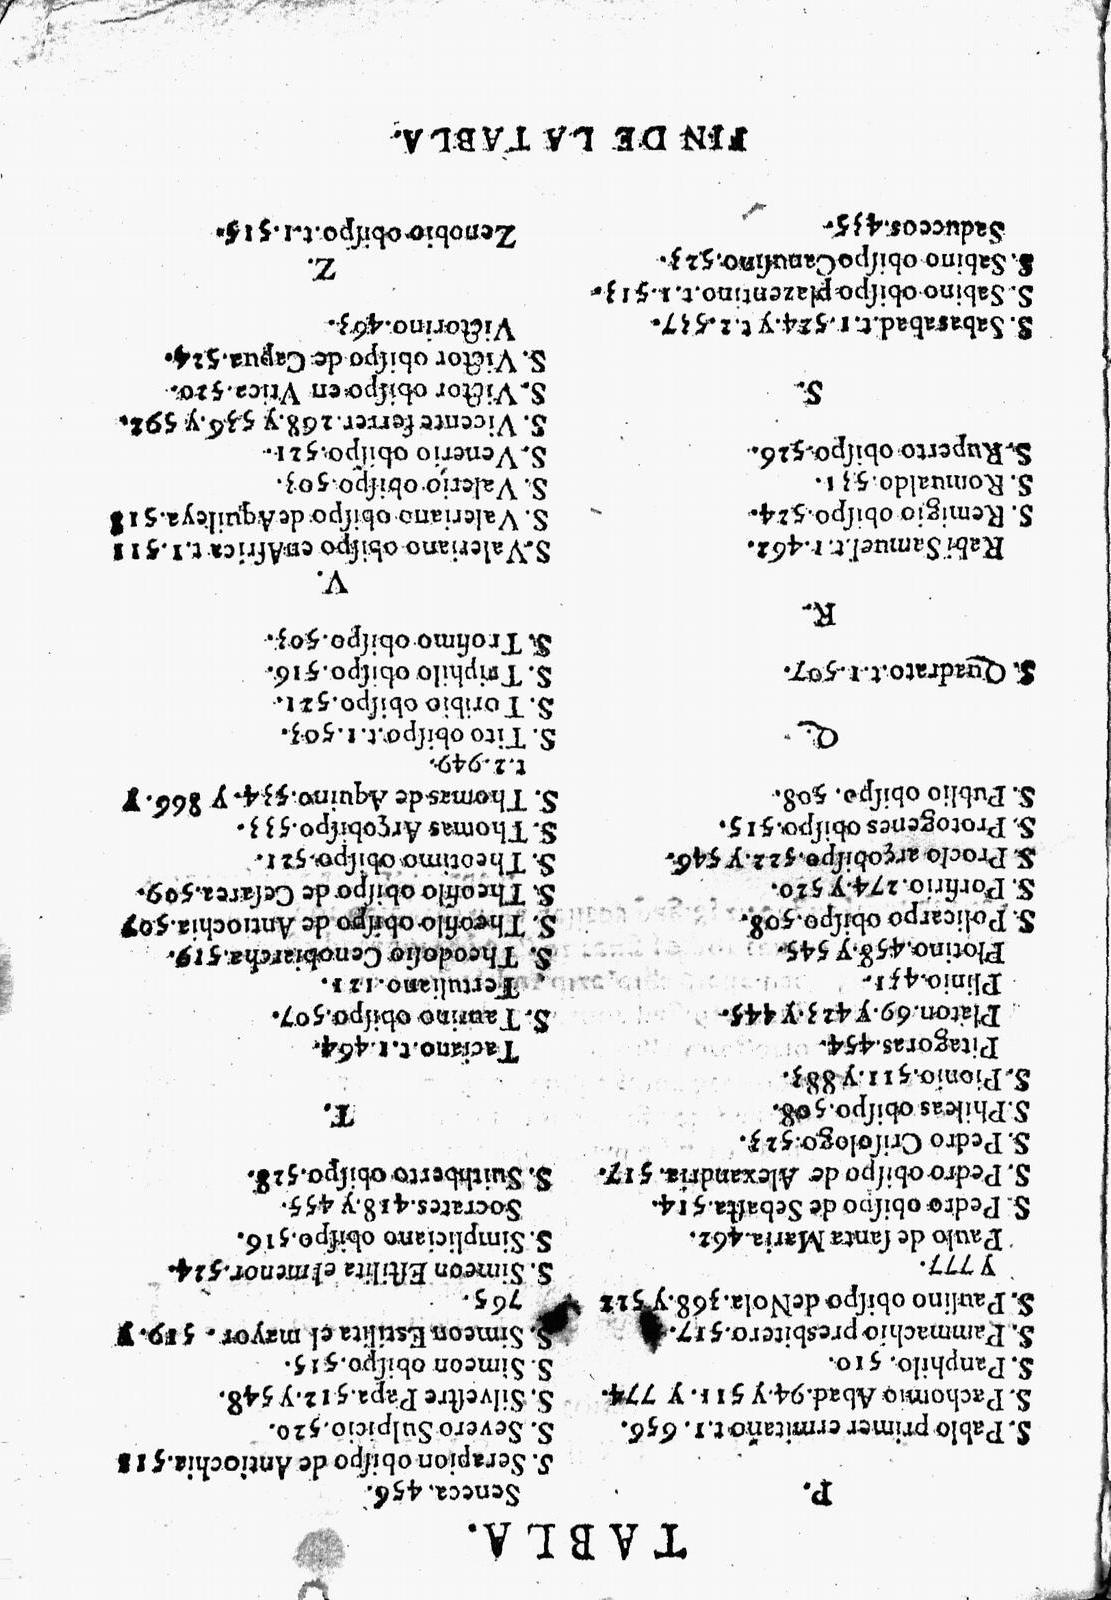 TABLA.
P.
S. Pablo primer ermitaño t.1. 656.
S. Pachomio Abad.94.y 511. y 774.
S. Panphilo. 510.
S. Pammachio presbitero.517.
S. Paulino obiſpo deNola.368.y 522
y 777.
Paulo de ſanta Maria.462.
S. Pedro obiſpo de Sebaſta.514.
S. Pedro obiſpo de Alexandria.517.
S. Pedro Criſologo.523.
S. Phileas obiſpo.508.
S. Pionio.511.y 883.
Pitagoras.454.
Platon.69.y 423.y 445.
Plinio.431.
Plotino.458.y 545.
S. Policarpo obiſpo.508.
S. Porfirio.274.y 520.
S. Proclo arçobiſpo.522.y 546.
S. Protogenes obiſpo.515.
S. Publio obiſpo. 508.
Q.
S. Quadrato.t.1.507.
R.
Rabi Samuel.t.1.462.
S. Remigio obiſpo.524.
S. Romualdo.531.
S. Ruperto obiſpo.526.
S.
S. Sabasabad.t.1.524.y t.2.537.
S. Sabino obiſpo plazentino.t.1.513.
S. Sabino obiſpo Canuſino.523.
Saduceos.435.
Seneca.456.
S. Serapion obiſpo de Antiochia.512
S. Severo Sulpicio.520.
S. Silveſtre Papa.512.y 548.
S. Simeon obiſpo.515.
S. Simeon Estilita el mayor. 519.y
765.
S. Simeon Eſtilita el menor.524.
S. Simpliciano obiſpo.516.
Socrates.418.y 455.
S. Suithberto obiſpo.528.
T.
Taciano.t.1.464.
S. Taurino obiſpo.507.
Tertuliano.121.
S. Theodoſio Cenobiarcha.519.
S. Theofilo obiſpo de Antiochia.507
S. Theofilo obiſpo de Ceſarea.509.
S. Theotimo obiſpo.521.
S. Thomas Arçobiſpo.533.
S. Thomas de Aquino.534.y 866.y
t.2.949.
S. Tito obiſpo.t.1.503.
S. Toribio obiſpo.521.
S. Triphilo obiſpo.516.
S. Trofimo obiſpo.503.
V.
S. Valeriano obiſpo en Africa t.1.511
S. Valeriano obiſpo de Aquileya.518
S. Valerio obiſpo.503.
S. Venerio obiſpo.521.
S. Vicente ferrer.268.y 536.y 592.
S. Victor obiſpo en Vtica.520.
S. Victor obiſpo de Capua.524.
Victorino.463.
Z.
Zenobio obiſpo.t.1.515.
FIN DE LA TABLA.